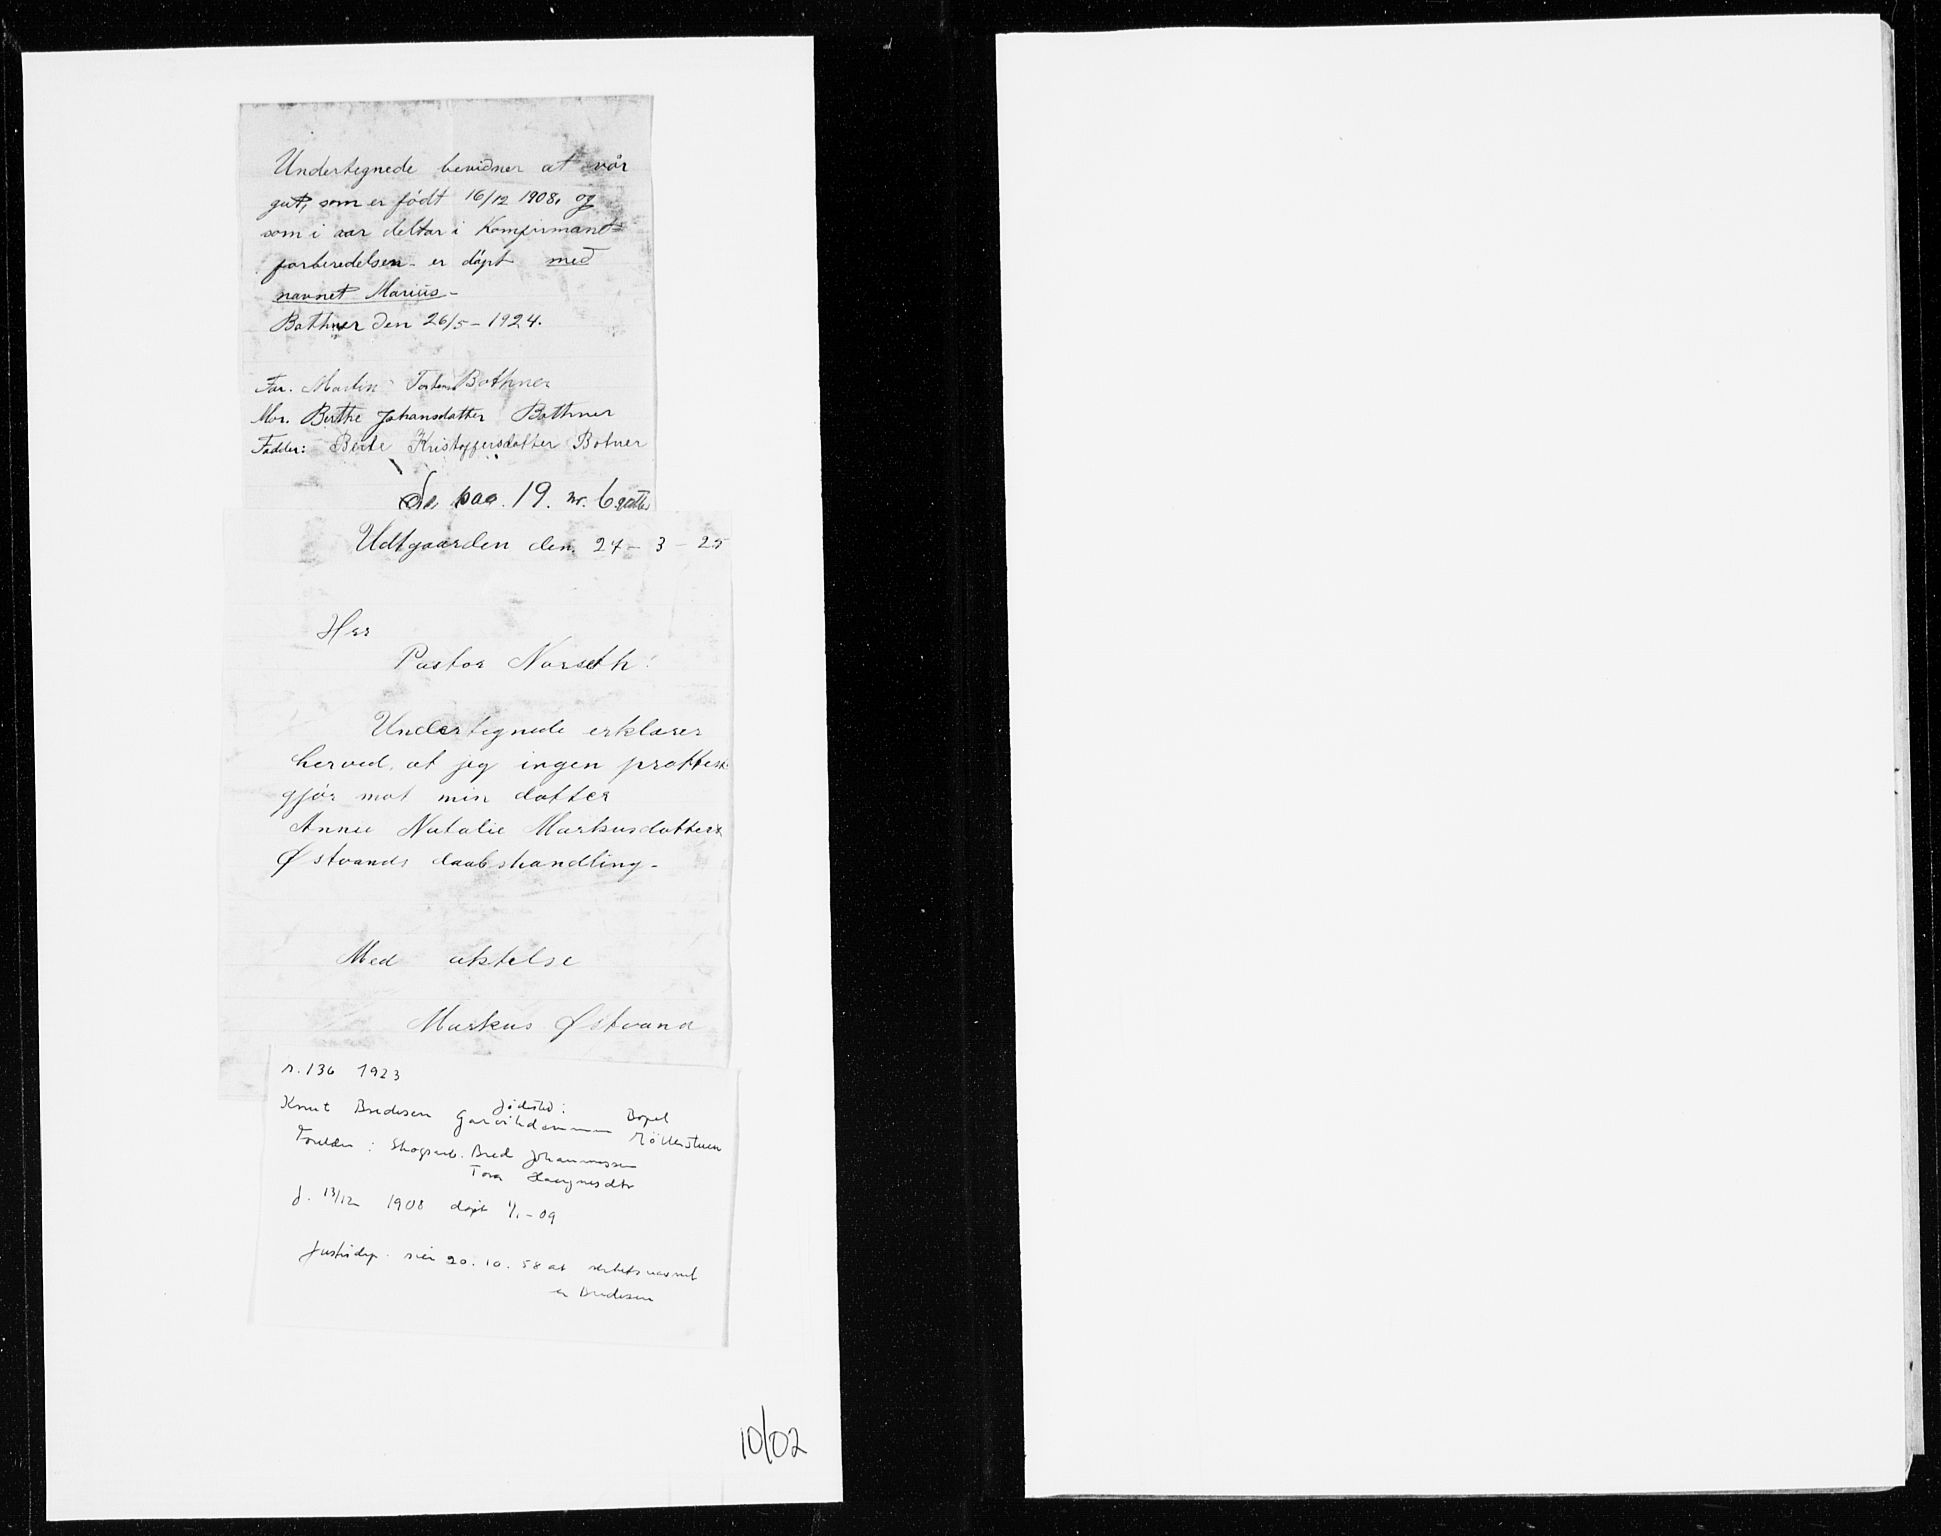 Undertegnede bevidner at vår
gut, som er født 16/12 1908, og
som i aar deltar i Konfirmand=
forberedelsen - er döpt med
navnet Marius -
Bothner den 26/5 - 1924.
Far. Martin Bothner
Mor. Berthe Johansdatter Bothner
Fadder: Berte Kristoffersdatter Botner
Se pag. 19. nr. 6 gutter
Udtgaarden den. 24 - 3 - 25
Herr
Pastor Narseth!
Undertegnede erklærer
herved, at jeg ingen prottest
gjør mot min datter
Annie Natalie Markusdatter
Østvands daabshandling -
Med aktelse
Markus Østvand
n. 136 1923
fødested: Bopel
Knut Bredesen Garvikdammen Möllerstuen
Foreldre: Skogsarb. Bred Johannessen
Tora
f. 13/12 1908 døpt 1/1-09
Justisdep. sier 20.10.58 at slektsnavnet
er Bredesen
10/02